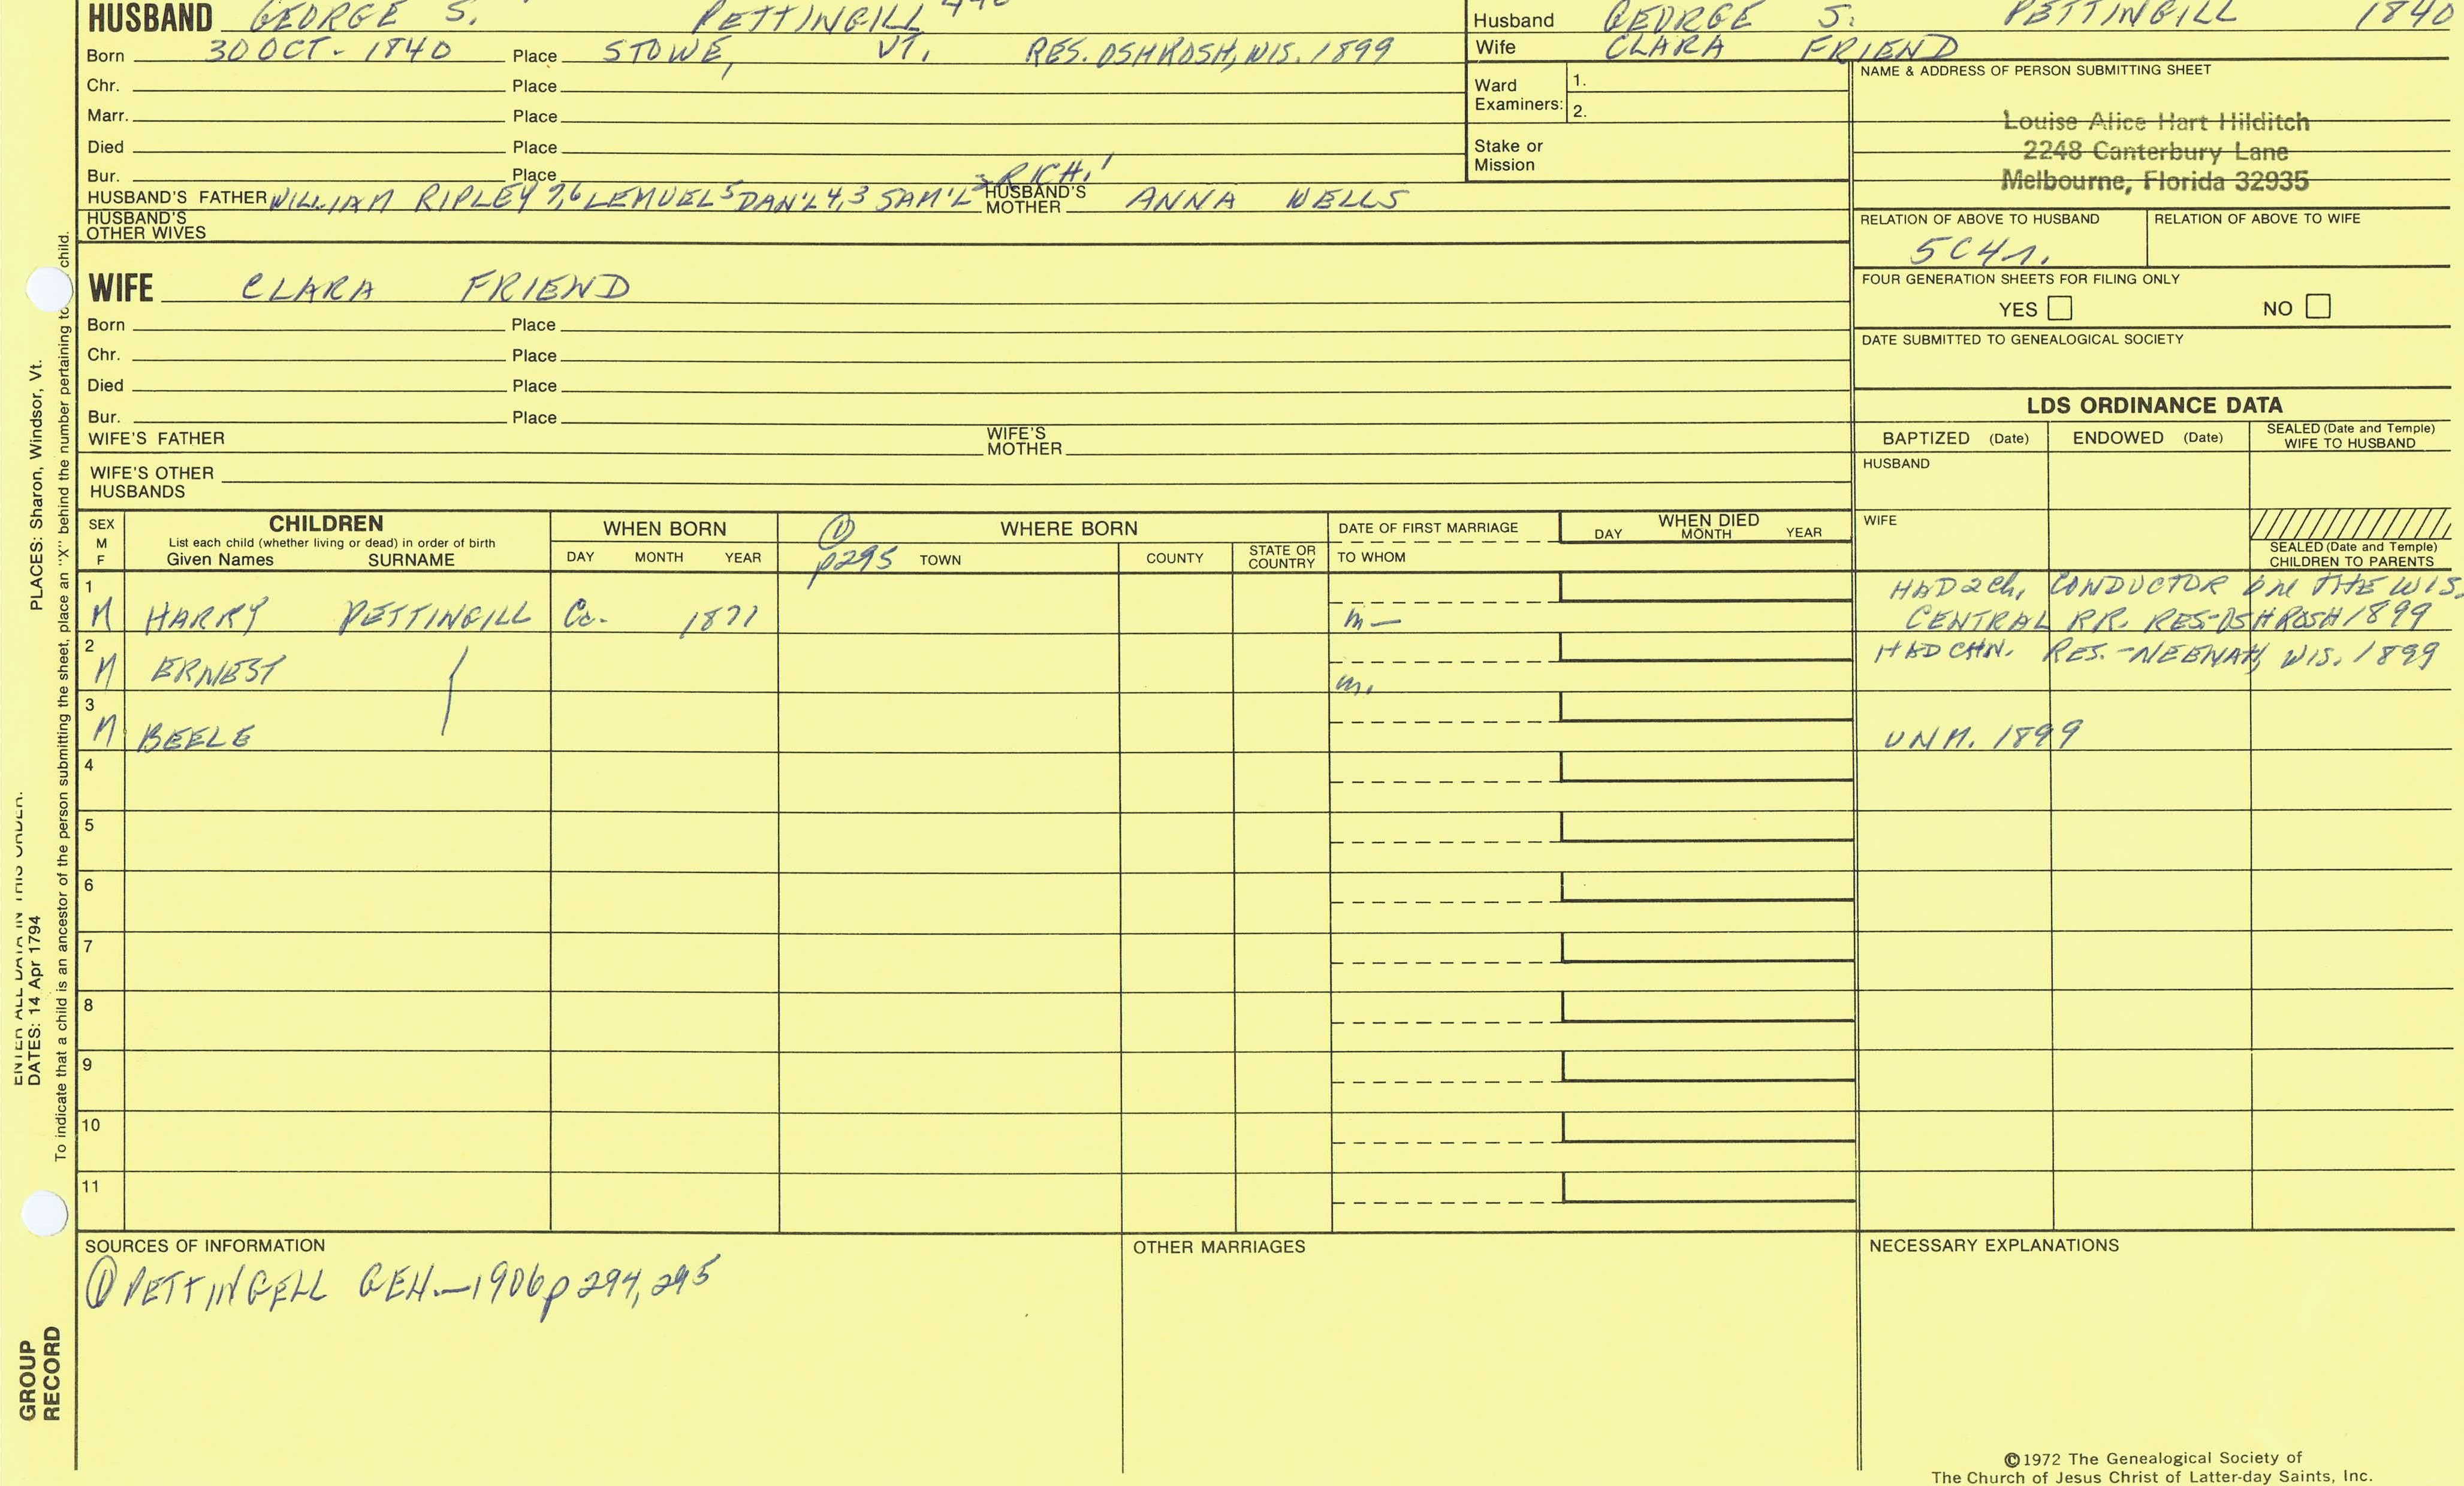 HUSBAND GEORGE S. PETTINGILL
Born 30 OCT - 1840 Place STOWE, VT. RES. OSHKOSH, WIS. 1899
Chr. Place
Marr. Place
Died Place
Bur. Place
HUSBAND'S FATHER WILLIAM RIPLEY 7,6 LEMUEL 5 DAN'L 4,3 SAM'L 2 RICH. 1 HUSBAND'S MOTHER ANNA WELLS
HUSBAND'S OTHER WIVES
Husband GEORGE S. PETTINGILL 1840
Wife CLARA FRIEND
Ward Examiners: 1.
2.
Stake or Mission
NAME & ADDRESS OF PERSON SUBMITTING SHEET
Louise Alice Hart Hilditch
2248 Canterbury Lane
Melbourne, Florida 32935
RELATION OF ABOVE TO HUSBAND RELATION OF ABOVE TO WIFE
5C4r.
FOUR GENERATION SHEETS FOR FILING ONLY
YES NO
DATE SUBMITTED TO GENEALOGICAL SOCIETY
WIFE CLARA FRIEND
Born Place
Chr. Place
Died Place
Bur. Place
WIFE'S FATHER WIFE'S MOTHER
WIFE'S OTHER HUSBANDS
LDS ORDINANCE DATA
BAPTIZED (Date) ENDOWED (Date) SEALED (Date and Temple) WIFE TO HUSBAND
HUSBAND
WIFE
SEALED (Date and Temple) CHILDREN TO PARENTS
SEX M F
CHILDREN
List each child (whether living or dead) in order of birth
Given Names SURNAME
WHEN BORN
DAY MONTH YEAR
① p295
WHERE BORN
TOWN COUNTY STATE OR COUNTRY
DATE OF FIRST MARRIAGE
TO WHOM
WHEN DIED
DAY MONTH YEAR
1 M HARRY PETTINGILL Ca. 1871 m- HAD 2 ch. CONDUCTOR ON THE WIS.
CENTRAL RR. RES-OSHKOSH 1899
2 M ERNEST m. HAD CHN. RES.-NEENAH, WIS. 1899
3 M BEELE UNM. 1899
4
5
6
7
8
9
10
11
SOURCES OF INFORMATION
① PETTINGELL GEN.-1906 p 294, 295
OTHER MARRIAGES
NECESSARY EXPLANATIONS
©1972 The Genealogical Society of
The Church of Jesus Christ of Latter-day Saints, Inc.
PLACES: Sharon, Windsor, Vt.
ENTER ALL DATA IN THIS ORDER:
DATES: 14 Apr 1794
To indicate that a child is an ancestor of the person submitting the sheet, place an "X" behind the number pertaining to child.
GROUP
RECORD